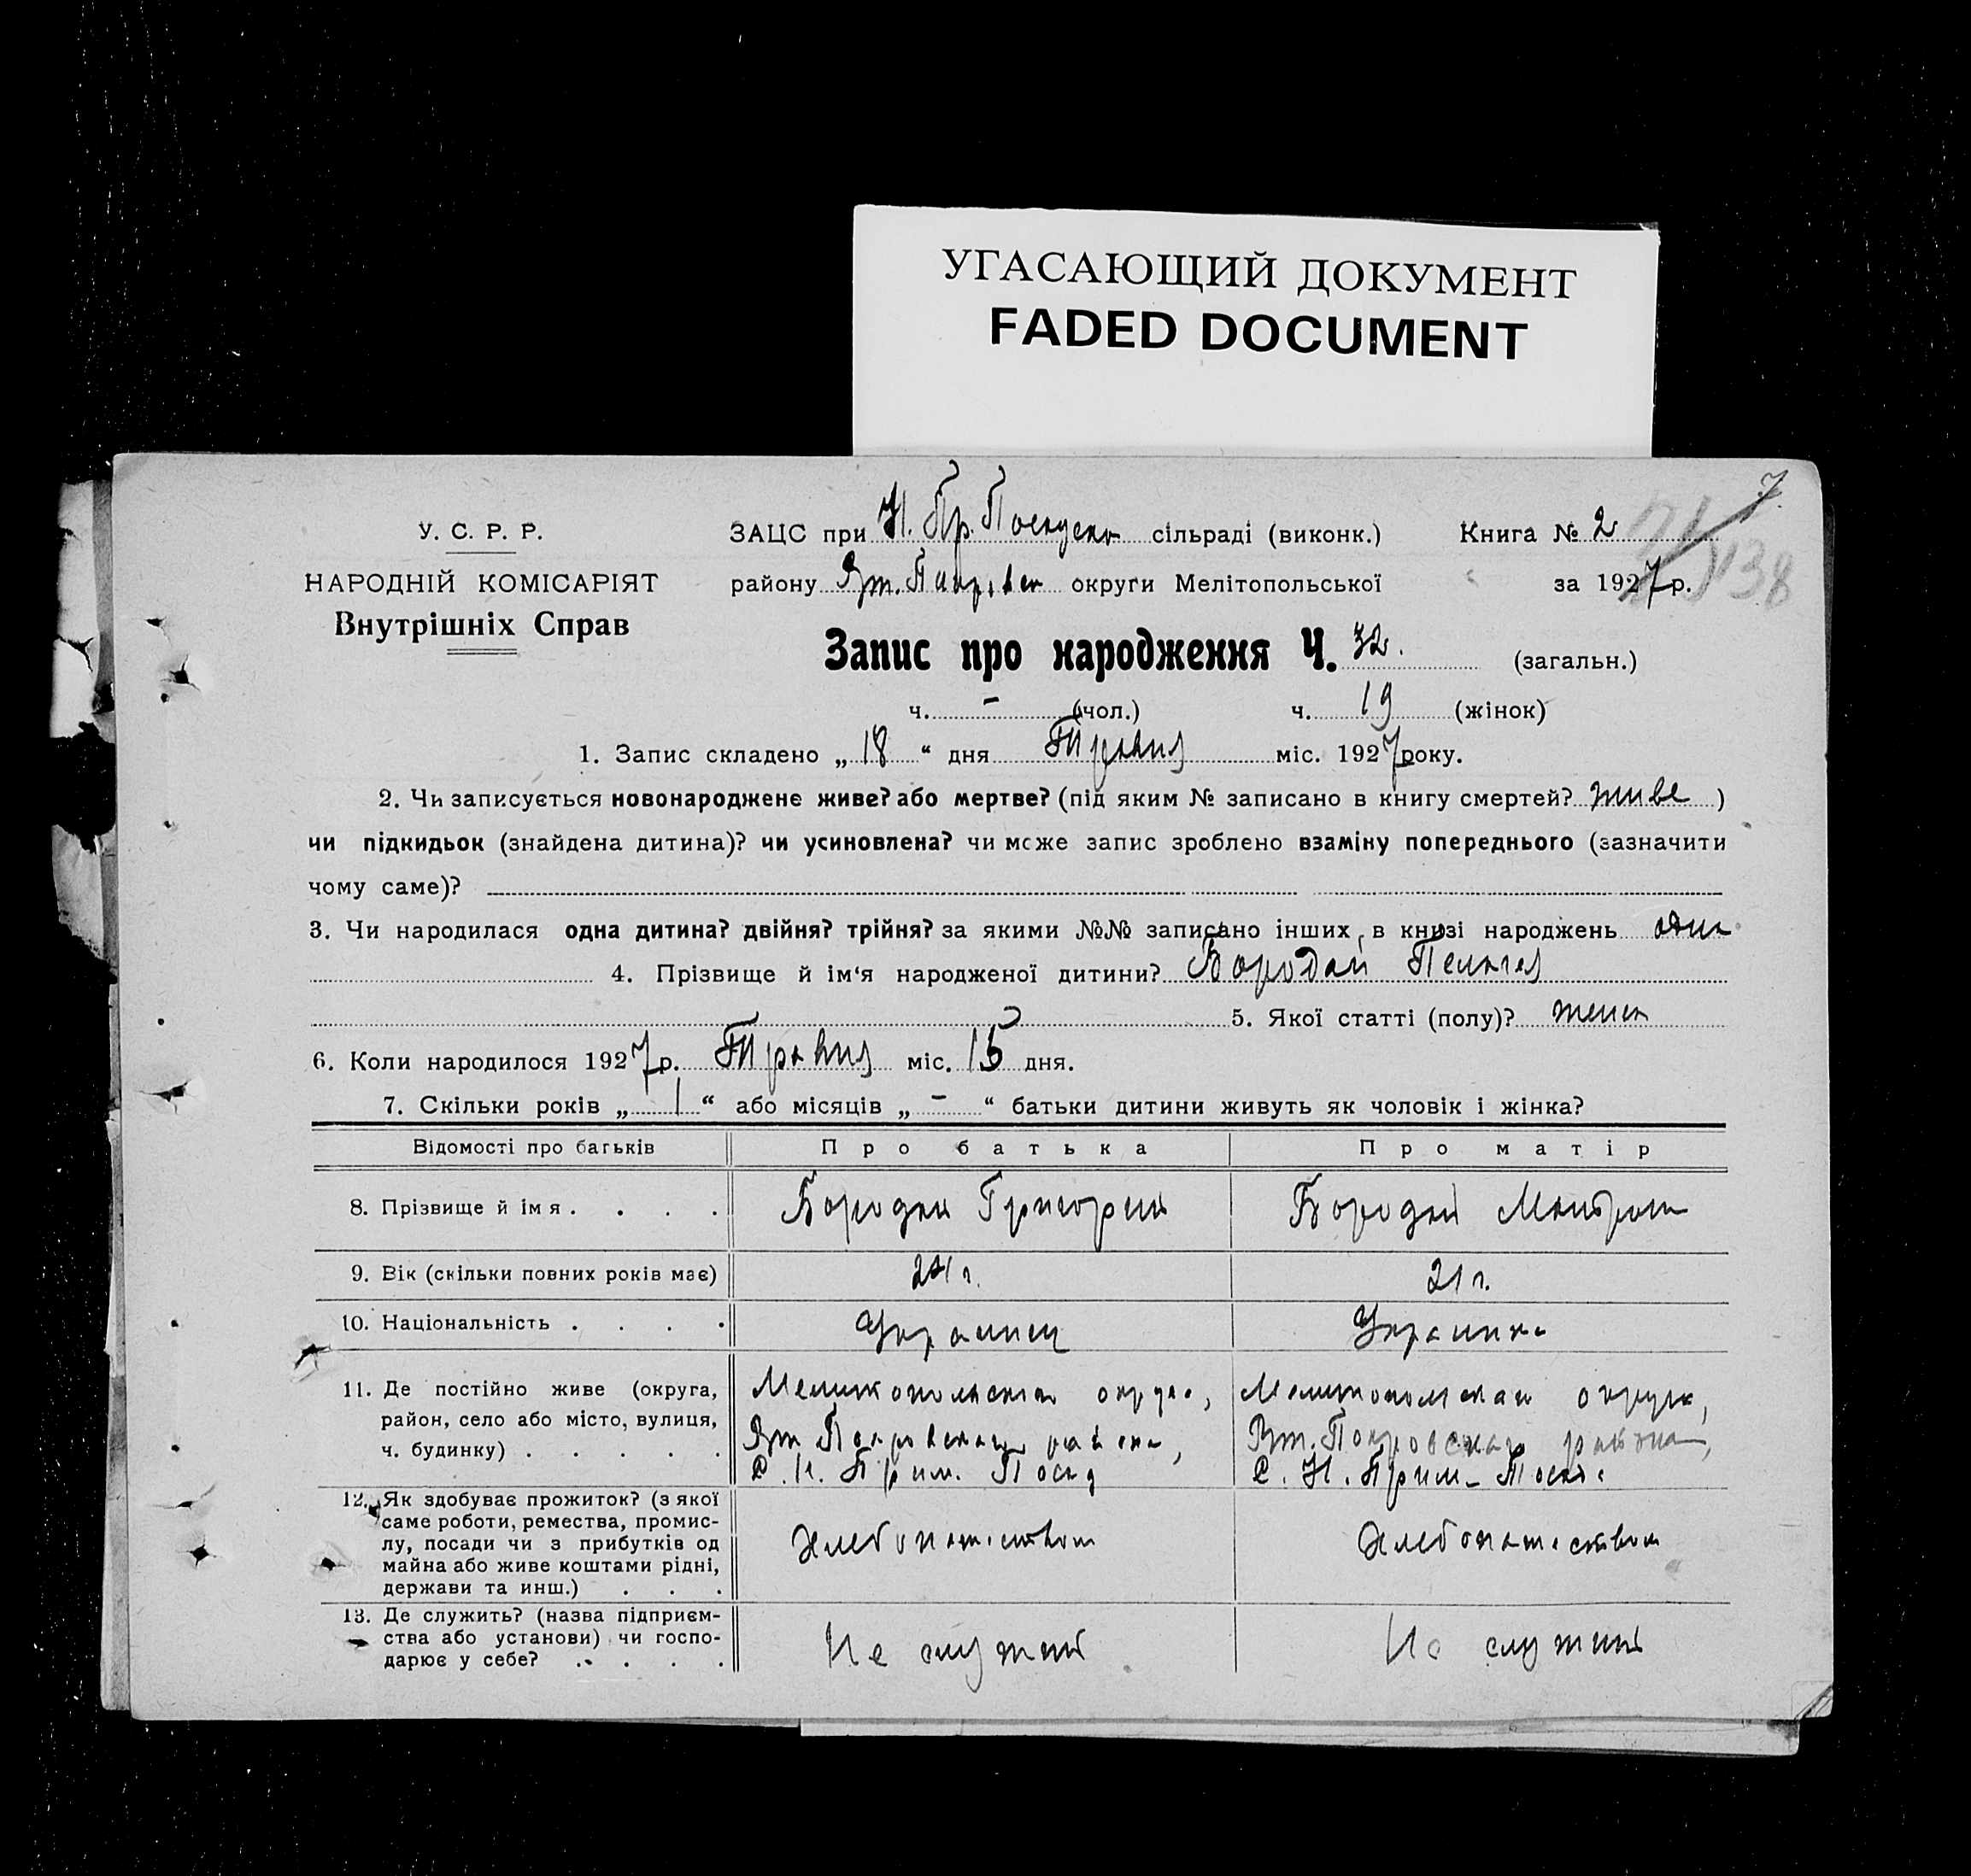 УГАСАЮЩИЙ ДОКУМЕНТ
FADED DOCUMENT
7
У. С. Р. Р.
НАРОДНІЙ КОМІСАРІЯТ
Внутрішніх Справ
ЗАЦС при Н. Пр. сільраді (виконк.) Книга № 2
138
району округи Мелітопольської за 1927 р.
Запис про народження Ч. 32. (загальн.)
ч. – (чол.) ч. 19 (жінок)
1. Запис складено „ 18 “ дня Травня міс. 1927 року.
2. Чи записується новонароджене живе? або мертве? (під яким № записано в книгу смертей? живе )
чи підкидьок (знайдена дитина)? чи усиновлена? чи може запис зроблено взаміну попереднього (зазначити
чому саме)?
3. Чи народилася одна дитина? двійня? трійня? за якими №№ записано інших в книзі народжень одна
4. Прізвище й ім‘я народженої дитини? Бородай Пелагея
5. Якої статті (полу)? женск
6. Коли народилося 1927 р. Травня міс. 15 дня.
7. Скільки років „ 1 “ або місяців „ – “ батьки дитини живуть як чоловік і жінка?
Відомості про батьків Про батька Про матір
8. Прізвище й імя . . . . Бородай Григорий Бородай
9. Вік (скільки повних років має) г. 21 г.
10. Національність . . . . Украинец Украинка
11. Де постійно живе (округа,
район, село або місто, вулиця,
ч. будинку) . . . . .
Мелитопольская округа,
Вт. Покровского района,
С. Н. Прим. Посад
Мелитопольская округа,
Вт. Покровского района,
С. Н. Прим-Посад
12. Як здобуває прожиток? (з якої
саме роботи, ремества, промис-
лу, посади чи з прибутків од
майна або живе коштами рідні,
держави та инш.) . . .
Хлебопашеством
Хлебопашеством
13. Де служить? (назва підприєм-
ства або установи) чи госпо-
дарює у себе? . . . . .
Не служит
Не служит